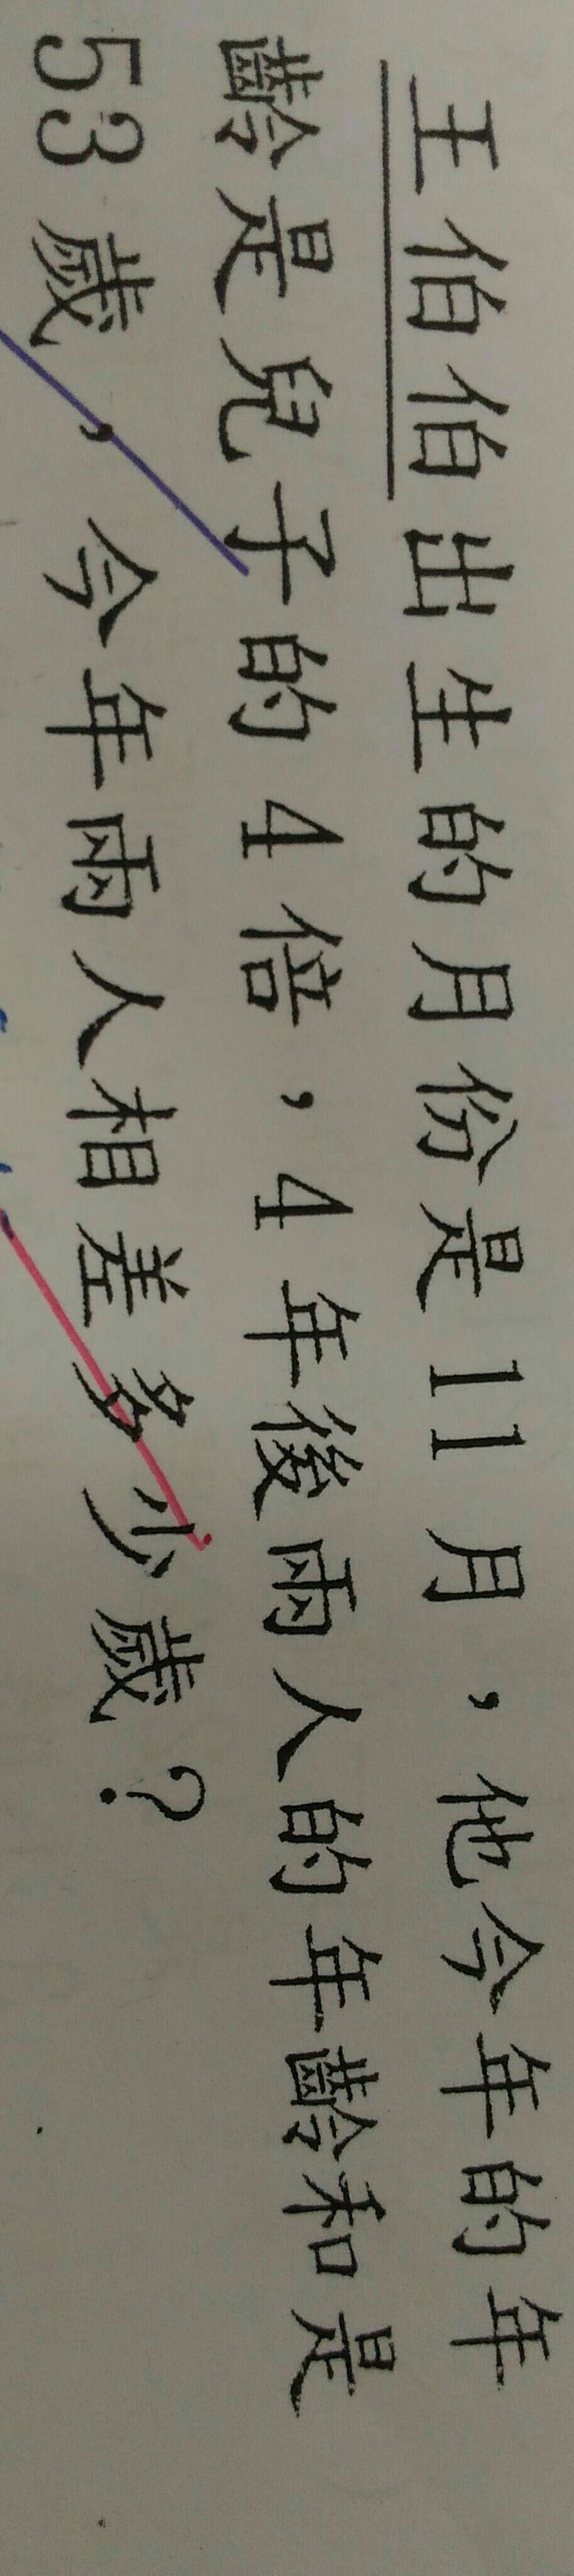 王伯伯出生的月份是11月，他今年的年
齡是兒子的4倍，4年後兩人的年齡和是
53歲，今年兩人相差多少歲？